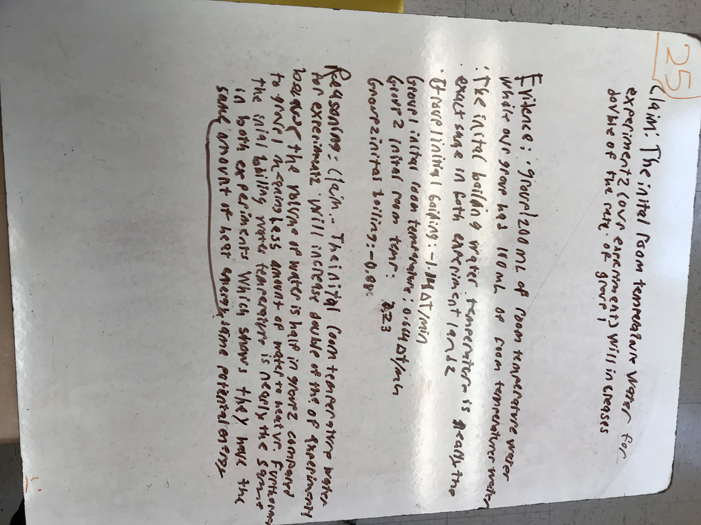 25
Claim: The inital room temperature water for
experiment 2 (our experiment) will increases
double of the rate of group 1
Evidence: · group 1 200 mL of room temperature water
while our group has 100 mL of room temperature water
· The inital boiling water temperature is nearly the
exact same in both experiment 1 and 2
· Group 1 inital boiling: -1.14 ΔT/min
Group 1 inital room temperature: 0.664 ΔT/min
Group 2 inital room temp: 2.23
Group 2 inital boiling: -0.88
Reasoning: Claim.. The inital room temperature water
for experiment 2 will increase double of the of experiment
because the volume of water is half in group 2 compared
to group 1 requiring less amount of water to heat up. Furthermore
the inital boiling water temperature is nearly the same
in both experiments which shows they have the
same amount of heat energy, same potential energy